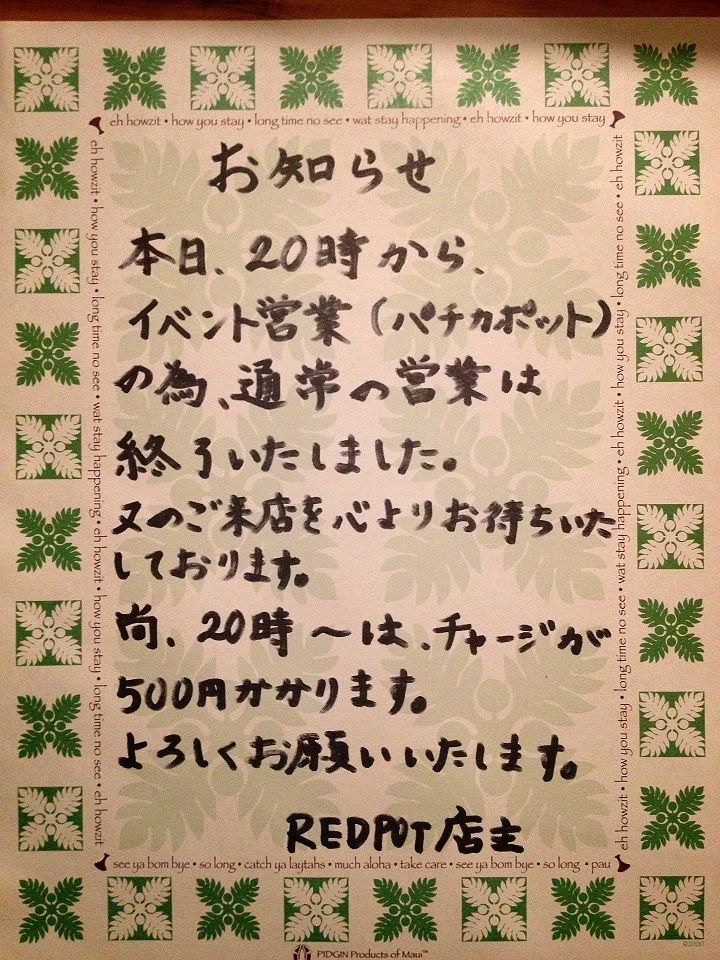 eh howzit • how you stay • long time no see • wat stay happening • eh howzit • how you stay
お知らせ
本日、20時から、
イベント営業(パチカポット)
の為、通常の営業は
終了いたしました。
又のご来店を心よりお待ちいた
しております。
尚、20時〜は、チャージが
500円かかります。
よろしくお願いいたします。
REDPOT店主
eh howzit • how you stay • long time no see • wat stay happening • eh howzit • how you stay • long time no see • eh howzit
eh howzit • how you stay • long time no see • wat stay happening • eh howzit • how you stay • long time no see • eh howzit
see ya bom bye • so long • catch ya laytahs • much aloha • take care • see ya bom bye • so long • pau
PIDGIN Products of Maui™
©2000